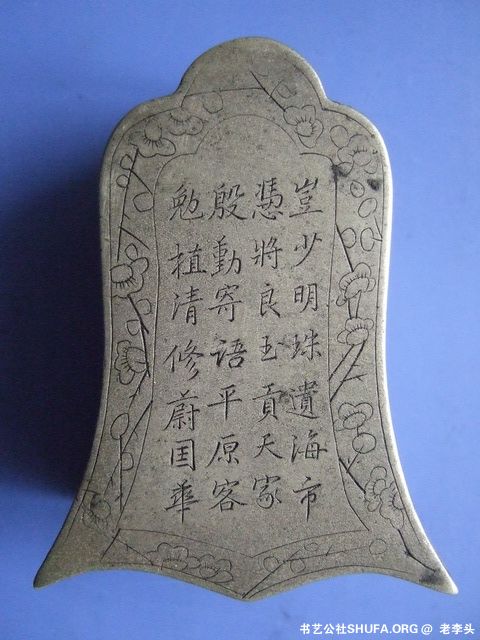 豈少明珠遺海市
憑將良玉貢天家
殷勤寄語平原客
勉植清修蔚国華
书艺公社SHUFA.ORG @ 老李头